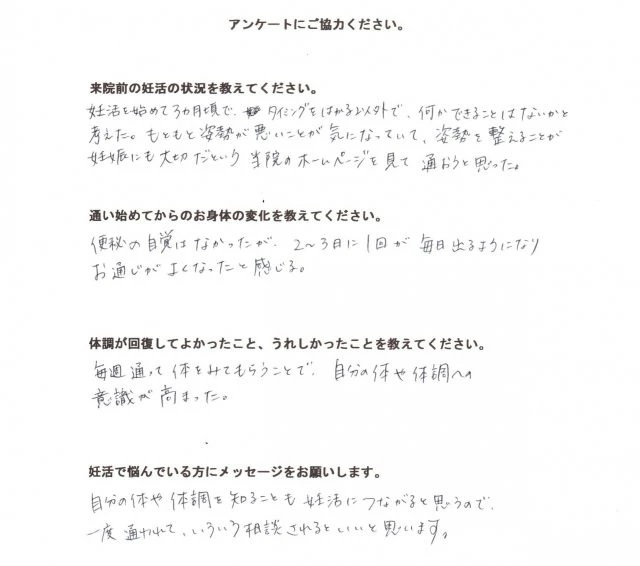 アンケートにご協力ください。
来院前の妊活の状況を教えてください。
妊活を始めて3カ月頃で、タイミングをはかる以外で、何かできることはないかと
考えた。もともと姿勢が悪いことが気になっていて、姿勢を整えることが
妊娠にも大切だという当院のホームページを見て通おうと思った。
通い始めてからのお身体の変化を教えてください。
便秘の自覚はなかったが、2〜3日に1回が毎日出るようになり
お通じがよくなったと感じる。
体調が回復してよかったこと、うれしかったことを教えてください。
毎週通って体をみてもらうことで、自分の体や体調への
意識が高まった。
妊活で悩んでいる方にメッセージをお願いします。
自分の体や体調を知ることも妊活につながると思うので、
一度通われて、いろいろ相談されるといいと思います。